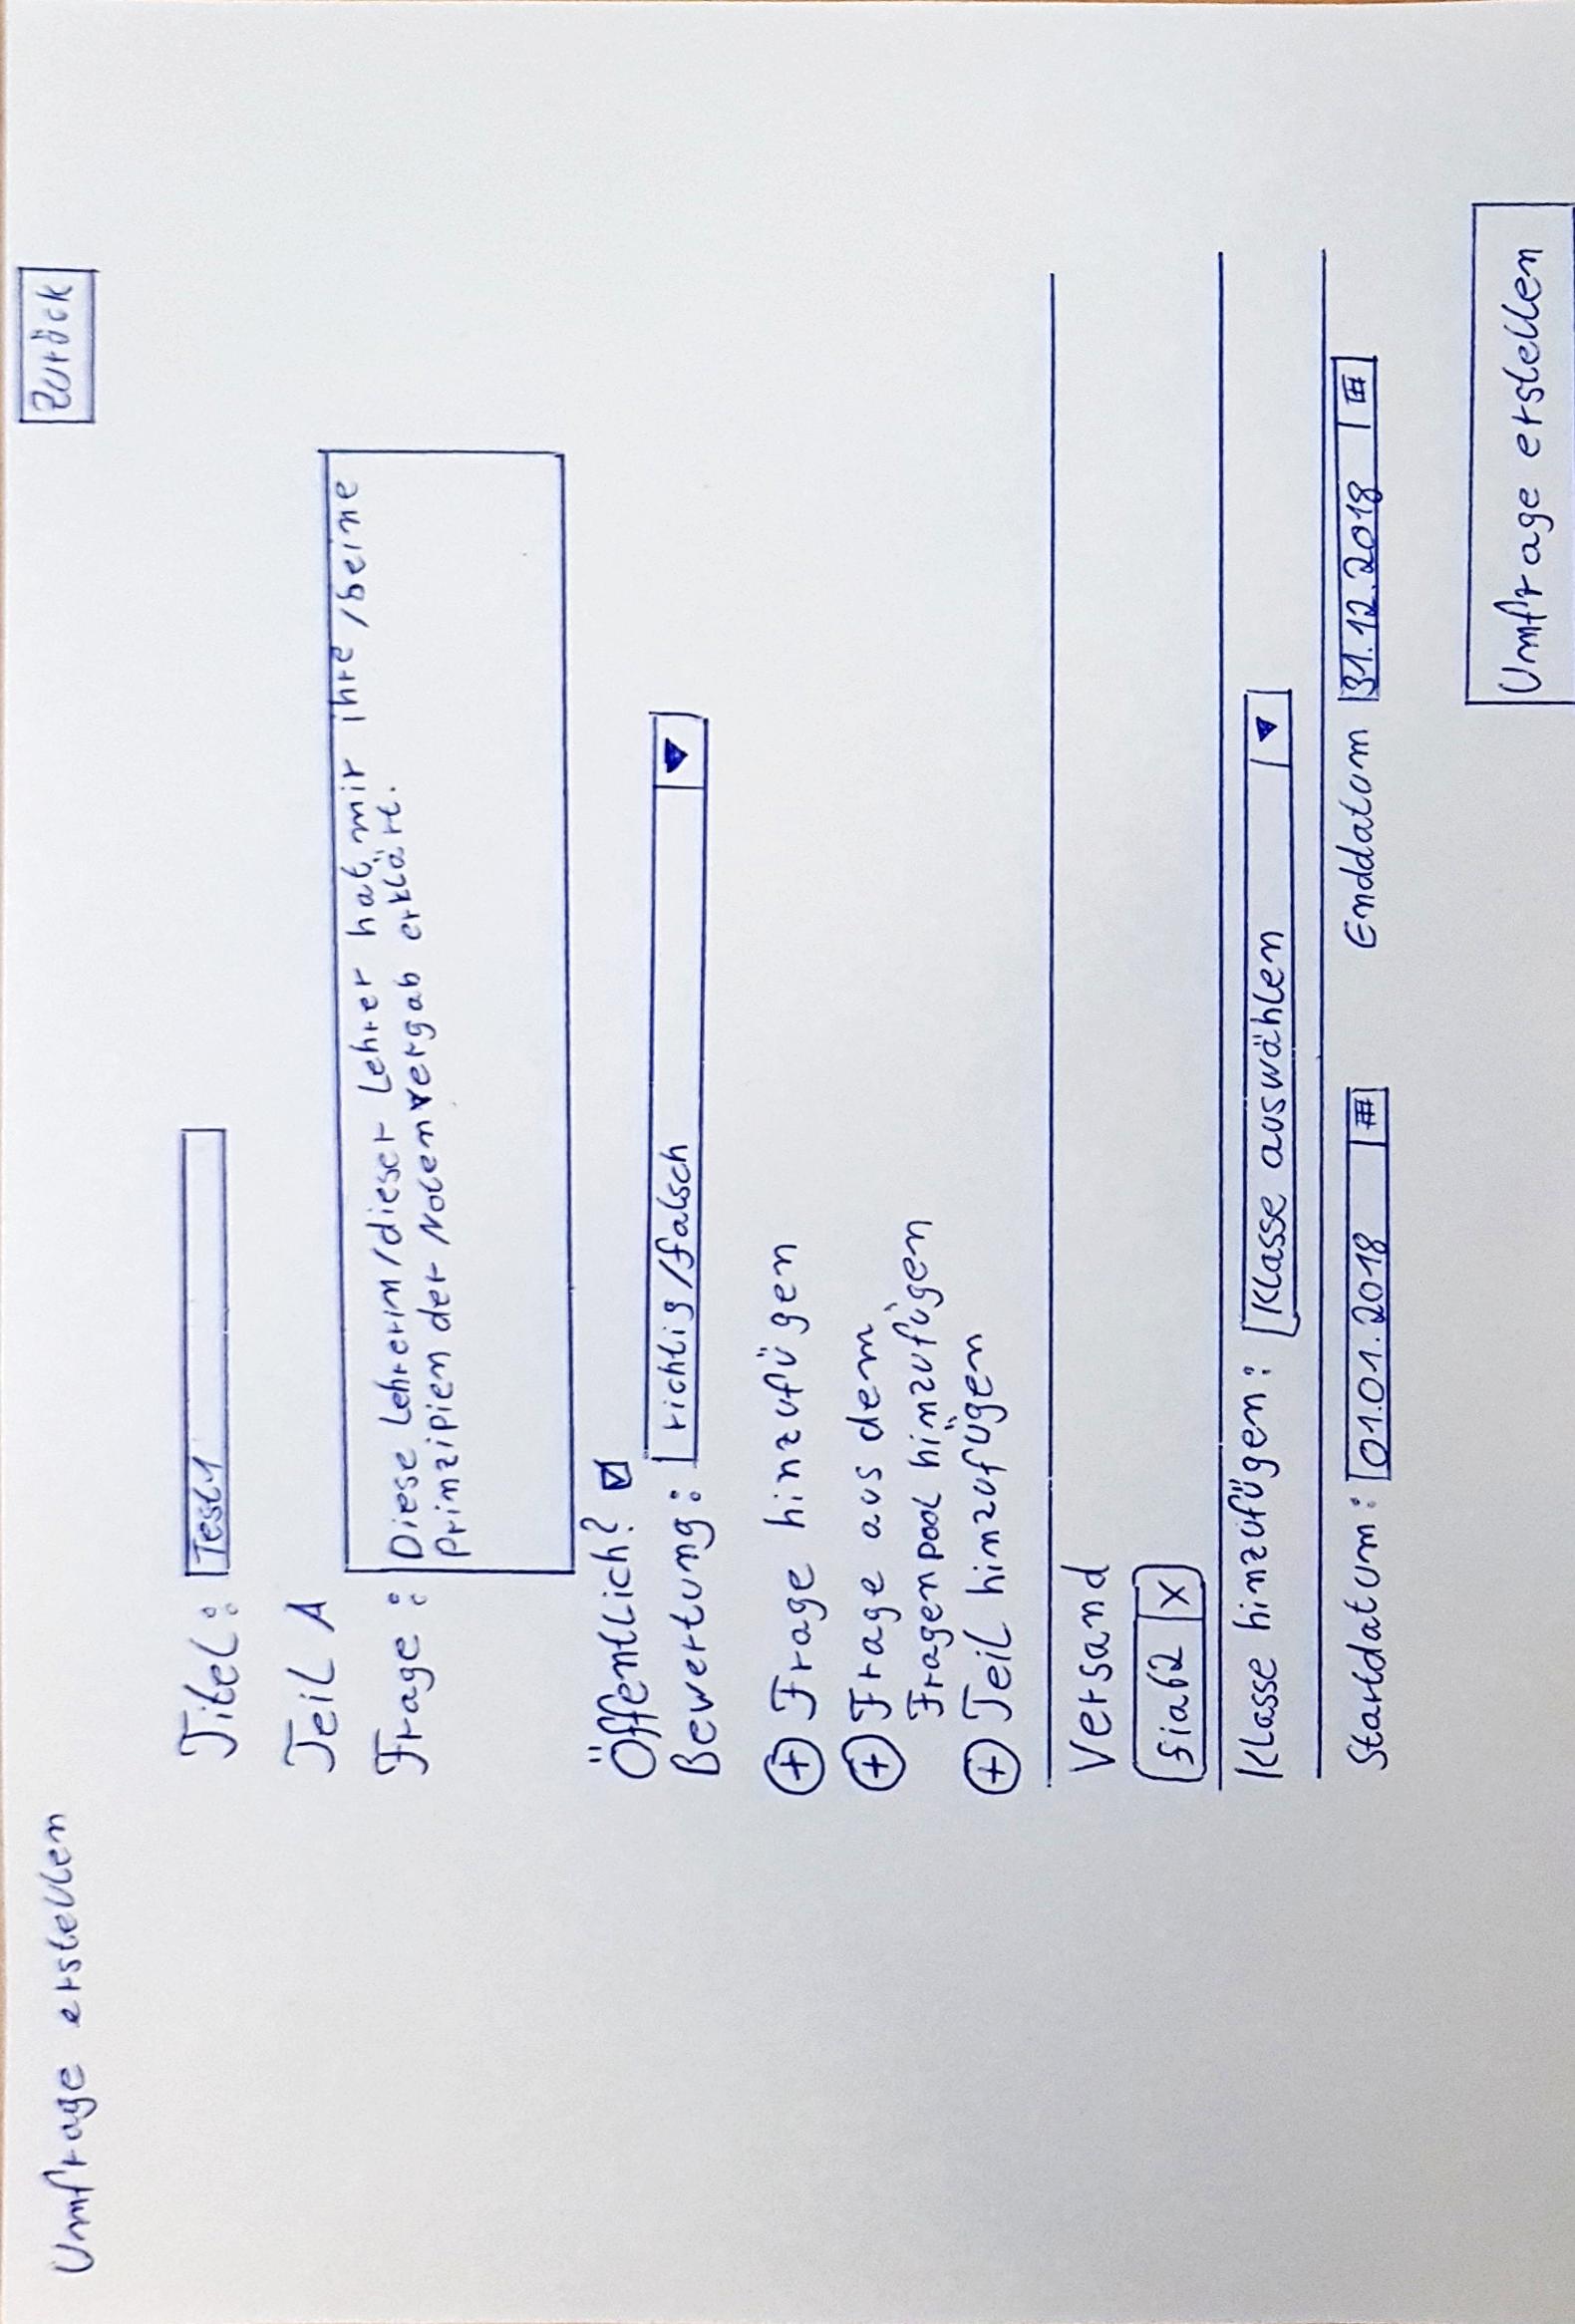 Umfrage erstellen
Zurück
Titel: Test1
Teil A
Frage: Diese Lehrerin/dieser Lehrer hat mir ihre/seine
Prinzipien der Notenvergab erklärt.
Öffentlich?
Bewertung: richtig/falsch
+ Frage hinzufügen
+ Frage aus dem
Fragenpool hinzufügen
+ Teil hinzufügen
Versand
fia62 X
Klasse hinzufügen: Klasse auswählen
Startdatum: 01.01.2018 Enddatum 31.12.2018
Umfrage erstellen